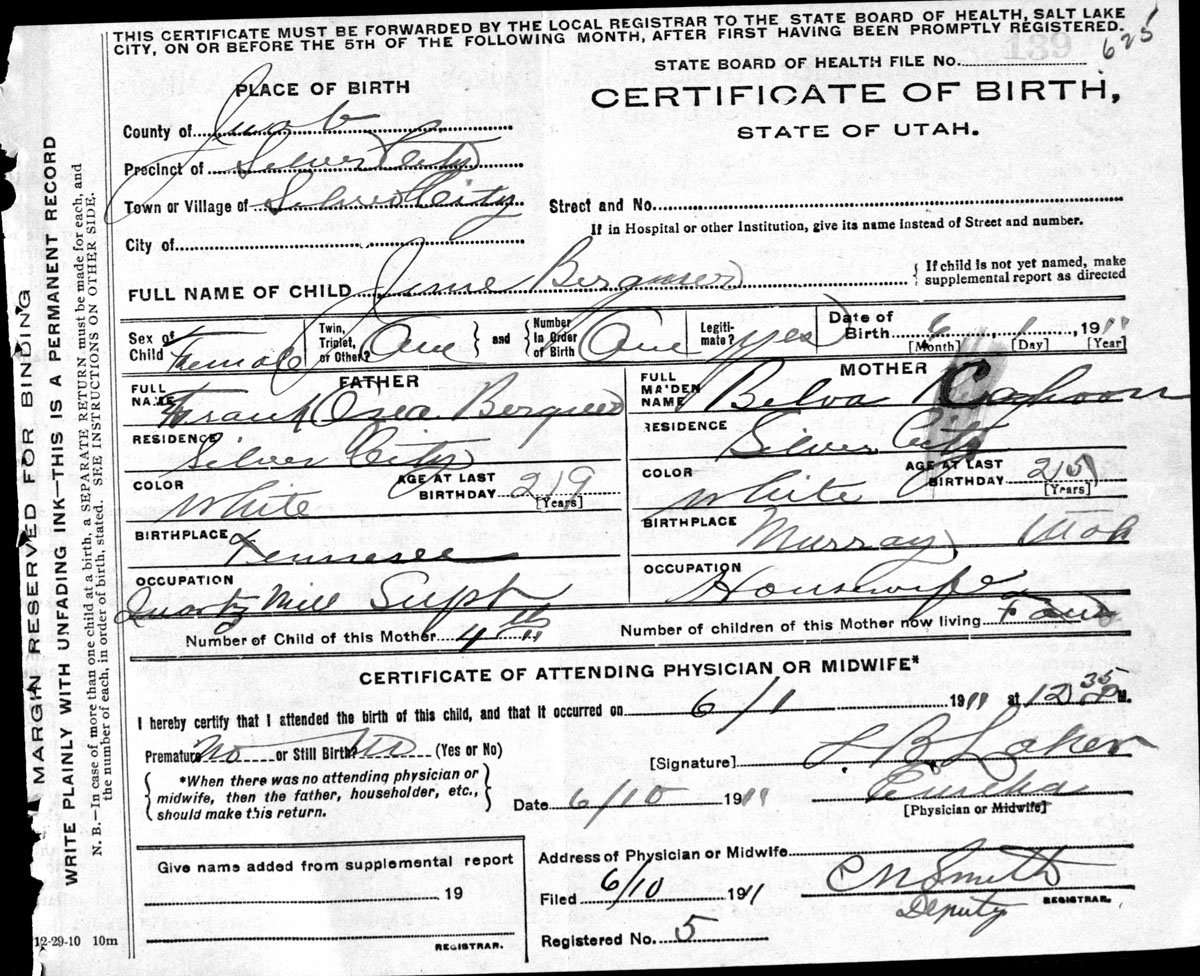 THIS CERTIFICATE MUST BE FORWARDED BY THE LOCAL REGISTRAR TO THE STATE BOARD OF HEALTH, SALT LAKE
CITY, ON OR BEFORE THE 5TH OF THE FOLLOWING MONTH, AFTER FIRST HAVING BEEN PROMPTLY REGISTERED.
139
625
STATE BOARD OF HEALTH FILE No.
CERTIFICATE OF BIRTH,
STATE OF UTAH.
PLACE OF BIRTH
County of Juab
Precinct of Silver City
Town or Village of Silver City
Street and No.
If in Hospital or other Institution, give its name instead of Street and number.
City of
FULL NAME OF CHILD June
{ If child is not yet named, make
supplemental report as directed
Sex of Child Female
Twin, Triplet, or Other? One } and { Number in Order of Birth One
Legiti-mate? yes
Date of Birth 6 1, 1911
[Month] [Day] [Year]
FATHER
FULL NAME Frank
RESIDENCE Silver City
COLOR White
AGE AT LAST BIRTHDAY 29
[Years]
BIRTHPLACE Tennesee
OCCUPATION Quartz Mill Supt
MOTHER
FULL MAIDEN NAME Belva Cahoon
RESIDENCE Silver City
COLOR White
AGE AT LAST BIRTHDAY 25
[Years]
BIRTHPLACE Murray Utah
OCCUPATION Housewife
Number of Child of this Mother 4th
Number of children of this Mother now living Four
CERTIFICATE OF ATTENDING PHYSICIAN OR MIDWIFE*
I hereby certify that I attended the birth of this child, and that it occurred on 6/1 1911 at 12 35 P M.
Premature No or Still Birth? No (Yes or No)
{ *When there was no attending physician or
midwife, then the father, householder, etc.,
should make this return. }
[Signature]
Date 6/10 1911
Eureka
[Physician or Midwife]
Give name added from supplemental report
19
REGISTRAR.
Address of Physician or Midwife
Filed 6/10 1911
C N Smith
Deputy REGISTRAR.
Registered No. 5
12-29-10 10m
MARGIN RESERVED FOR BINDING
WRITE PLAINLY WITH UNFADING INK—THIS IS A PERMANENT RECORD
N. B.—In case of more than one child at a birth, a SEPARATE RETURN must be made for each, and
the number of each, in order of birth, stated. SEE INSTRUCTIONS ON OTHER SIDE.